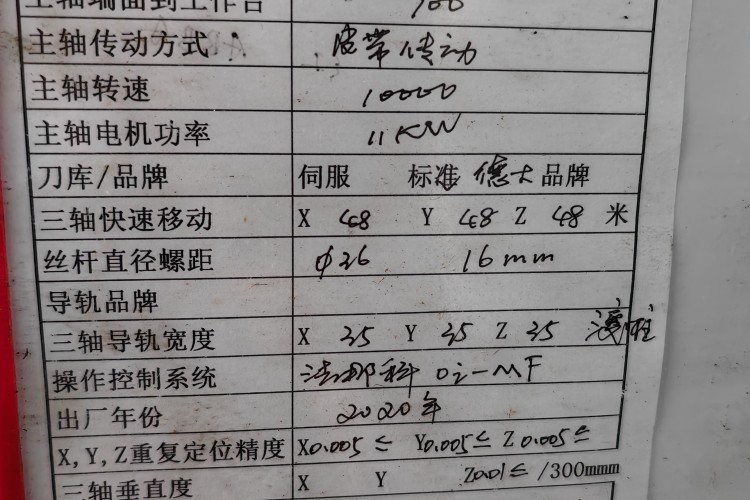 主轴端面到工作台 100
主轴传动方式 皮带传动
主轴转速 10000
主轴电机功率 11KW
刀库/品牌 伺服 标准 德大 品牌
三轴快速移动 X 48 Y 48 Z 48 米
丝杆直径螺距 φ36 16mm
导轨品牌
三轴导轨宽度 X 35 Y 35 Z 35 滚柱
操作控制系统 法那科 0i-MF
出厂年份 2020年
X,Y,Z重复定位精度 X0.005≤ Y0.005≤ Z0.005≤
三轴垂直度 X Y Z0.01≤/300mmm